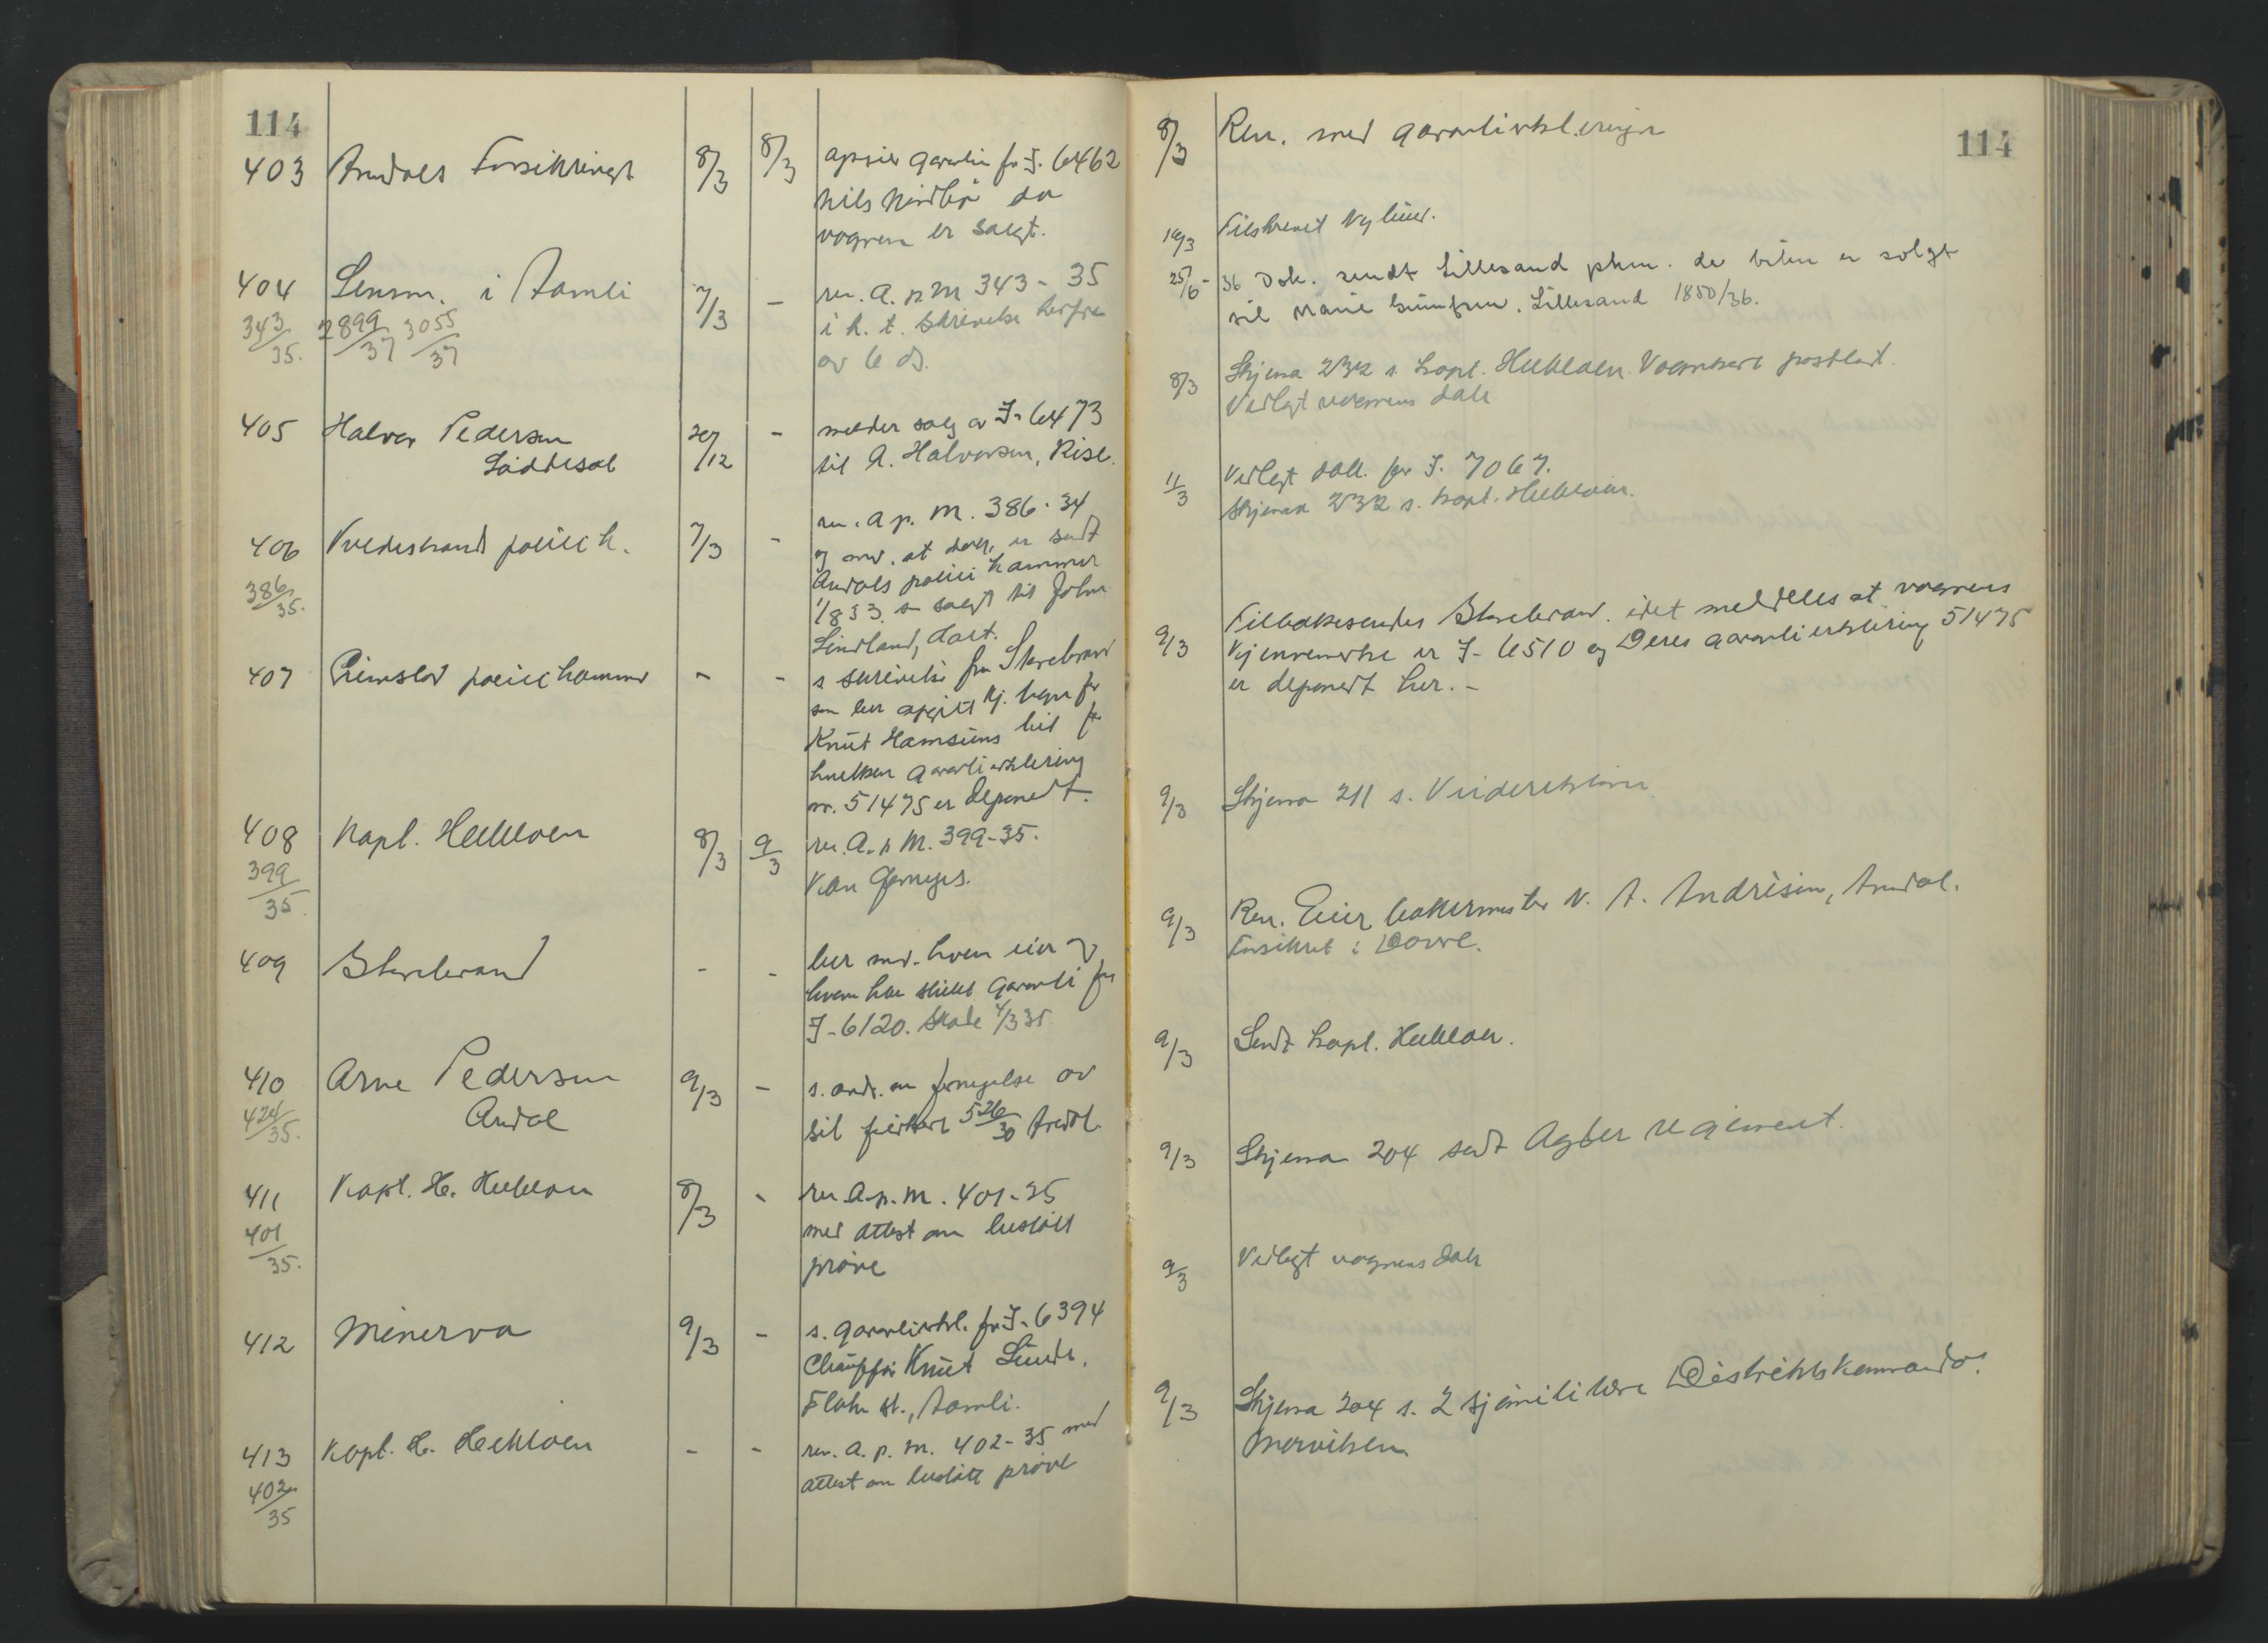 114
403 Arendals Forsikringt 8/3 8/3 opsier garanti for J. 6462
Nils
da
vognen er solgt.
404 Lensm. i Aamli 7/3 - ret. A. p M 343-35
343/35. 2899/37 3055/37
i h. t. skrivelse herfra
av 6 ds.
405 Halvor Pedersen 20/12 - melder salg av J-6473
Løddesøl
til A. Halvorsen, Rise.
406 Tvedestrand politik. 7/3 - ret. A p. M. 386-34
386/35.
og med. at dok. er sendt
Arendals politikammer
1/8 33. sn solgt til John
Lindland, Holt.
407 Grimstad politikammer - - s skrivelse fra Storebrand
som ber opgitt kj. tegn for
Knut Hamsuns bil for
hvilken garantierklæring
nr. 51475 er deponert.
408 Kapt. Heldaas 8/3 9/3 ret. A. p M. 399-35.
399/35.
Kan fornyes.
409 Storebrand - - ber med. hvem eier og
hvem har stillet garanti for
J-6120. Skade 4/3 35
410 Arne Pedersen 9/3 - s. ands. om fornyelse av
424/35.
Arendal
sit førerkort 526/30 Arendal.
411 Kapt. H. 8/3 - ret A. p. M. 401-35
401/35.
med attest om bestått
prøve
412 Minerva 9/3 - s. garantierkl. for J-6394
Chauffør Knut Lunde,
Flaten st., Aamli.
413 Kapt. H. - - ret. A. p. M. 402-35 med
402/35
attest om bestått prøve
114
8/3 Ret. med garantierkleringen
16/3 Tilskrevet
25/6- 36 Dok. sendt Lillesand pkm. da bilen er solgt
til Marie Lillesand 1850/36.
8/3 Skjema 232 s. kapt. Vognkort postlagt.
Vedlagt vognens dok
11/3 Vedlagt dok. for J. 7067.
Skjema 232 s. kapt.
9/3 Tilbakesendes Storebrand, idet meddeles at vognens
kjennemerke er J-6510 og Deres garantierklering 51475
er deponert her. -
9/3 Skjema 211 s. Veidirektøren
9/3 Ret. Eier bakermester N. A. Andrésen, Arendal.
Forsikret i Dovre.
9/3 Sendt kapt.
9/3 Skjema 204 sendt Agder regiment.
9/3 Vedlagt vognens dok
9/3 Skjema 204 s. 2 sjømilitære Distriktskommando.
Marviken